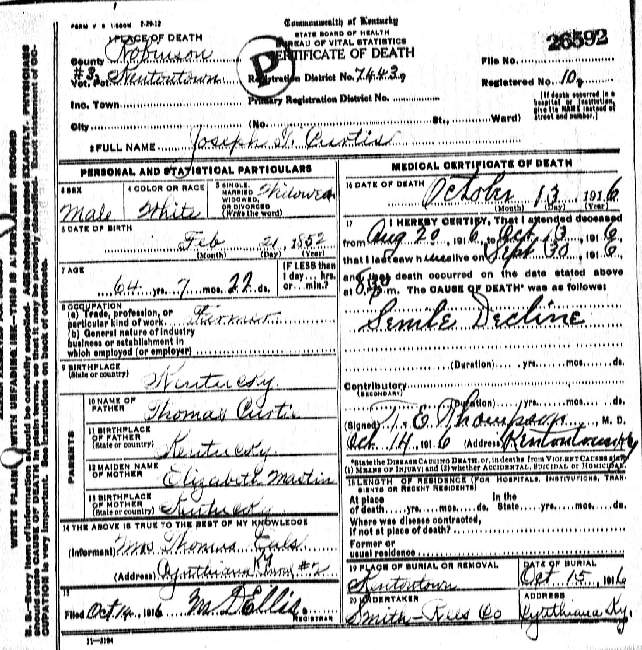 FORM V S 1-500M 7-29-12
Commonwealth of Kentucky
STATE BOARD OF HEALTH
BUREAU OF VITAL STATISTICS
CERTIFICATE OF DEATH
26592
1 PLACE OF DEATH
County Robinson
#3 Vot. Pct. Kentontown
Registration District No. 7443
File No.
Inc. Town
Primary Registration District No.
Registered No. 10
City (No. St., Ward)
(If death occurred in a hospital or institution, give its NAME instead of street and number.)
2 FULL NAME Joseph T. Curtis
PERSONAL AND STATISTICAL PARTICULARS
3 SEX Male
4 COLOR OR RACE White
5 SINGLE, MARRIED, WIDOWED, OR DIVORCED (Write the word) Widower
6 DATE OF BIRTH
Feb 21, 1852
(Month) (Day) (Year)
7 AGE
64 yrs. 7 mos. 22 ds.
IF LESS than 1 day, hrs. or min.?
8 OCCUPATION
(a) Trade, profession, or particular kind of work Farmer
(b) General nature of industry business or establishment in which employed (or employer)
9 BIRTHPLACE (State or country) Kentucky
PARENTS
10 NAME OF FATHER Thomas Curtis
11 BIRTHPLACE OF FATHER (State or country) Kentucky
12 MAIDEN NAME OF MOTHER Elizabeth Martin
13 BIRTHPLACE OF MOTHER (State or country) Kentucky
14 THE ABOVE IS TRUE TO THE BEST OF MY KNOWLEDGE
(Informant) Mrs Thomas
(Address) Cynthiana Ky #2
15
Filed Oct 14, 1916 M. D Ellis
REGISTRAR
11-3184
MEDICAL CERTIFICATE OF DEATH
16 DATE OF DEATH October 13 1916
(Month) (Day) (Year)
17 I HEREBY CERTIFY, That I attended deceased
from Aug 20 1916, to Oct 13 1916,
that I last saw h alive on Sept 30, 1916,
and that death occurred on the date stated above
at m. The CAUSE OF DEATH* was as follows:
Senile Decline
(Duration) yrs. mos. ds.
Contributory (SECONDARY)
(Duration) yrs. mos. ds.
(Signed) E Thompson, M. D.
Oct. 14, 1916 (Address) Kentontown Ky
*State the DISEASE CAUSING DEATH, or, in deaths from VIOLENT CAUSES state (1) MEANS OF INJURY; and (2) whether ACCIDENTAL, SUICIDAL or HOMICIDAL.
18 LENGTH OF RESIDENCE (FOR HOSPITALS, INSTITUTIONS, TRANSIENTS OR RECENT RESIDENTS)
At place of death yrs. mos. ds. In the State yrs. mos. ds.
Where was disease contracted, if not at place of death?
Former or usual residence
19 PLACE OF BURIAL OR REMOVAL Kentontown
DATE OF BURIAL Oct. 15, 1916
20 UNDERTAKER Smith-Rees Co
ADDRESS Cynthiana Ky.